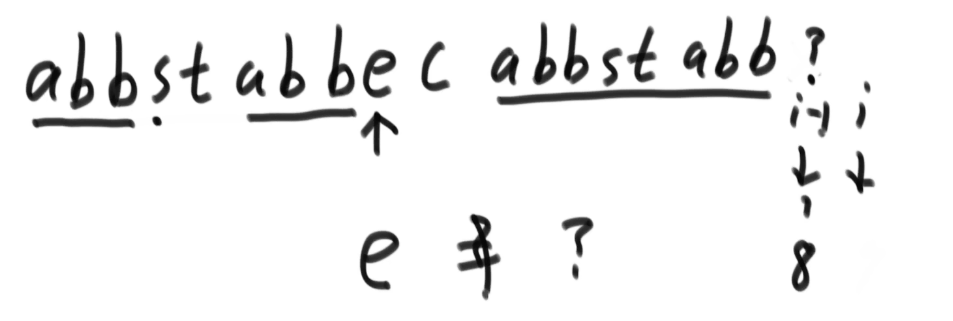 abbst abbec abbst abb ?
i-1 i
↑ ↓ ↓
e ≠ ? 8